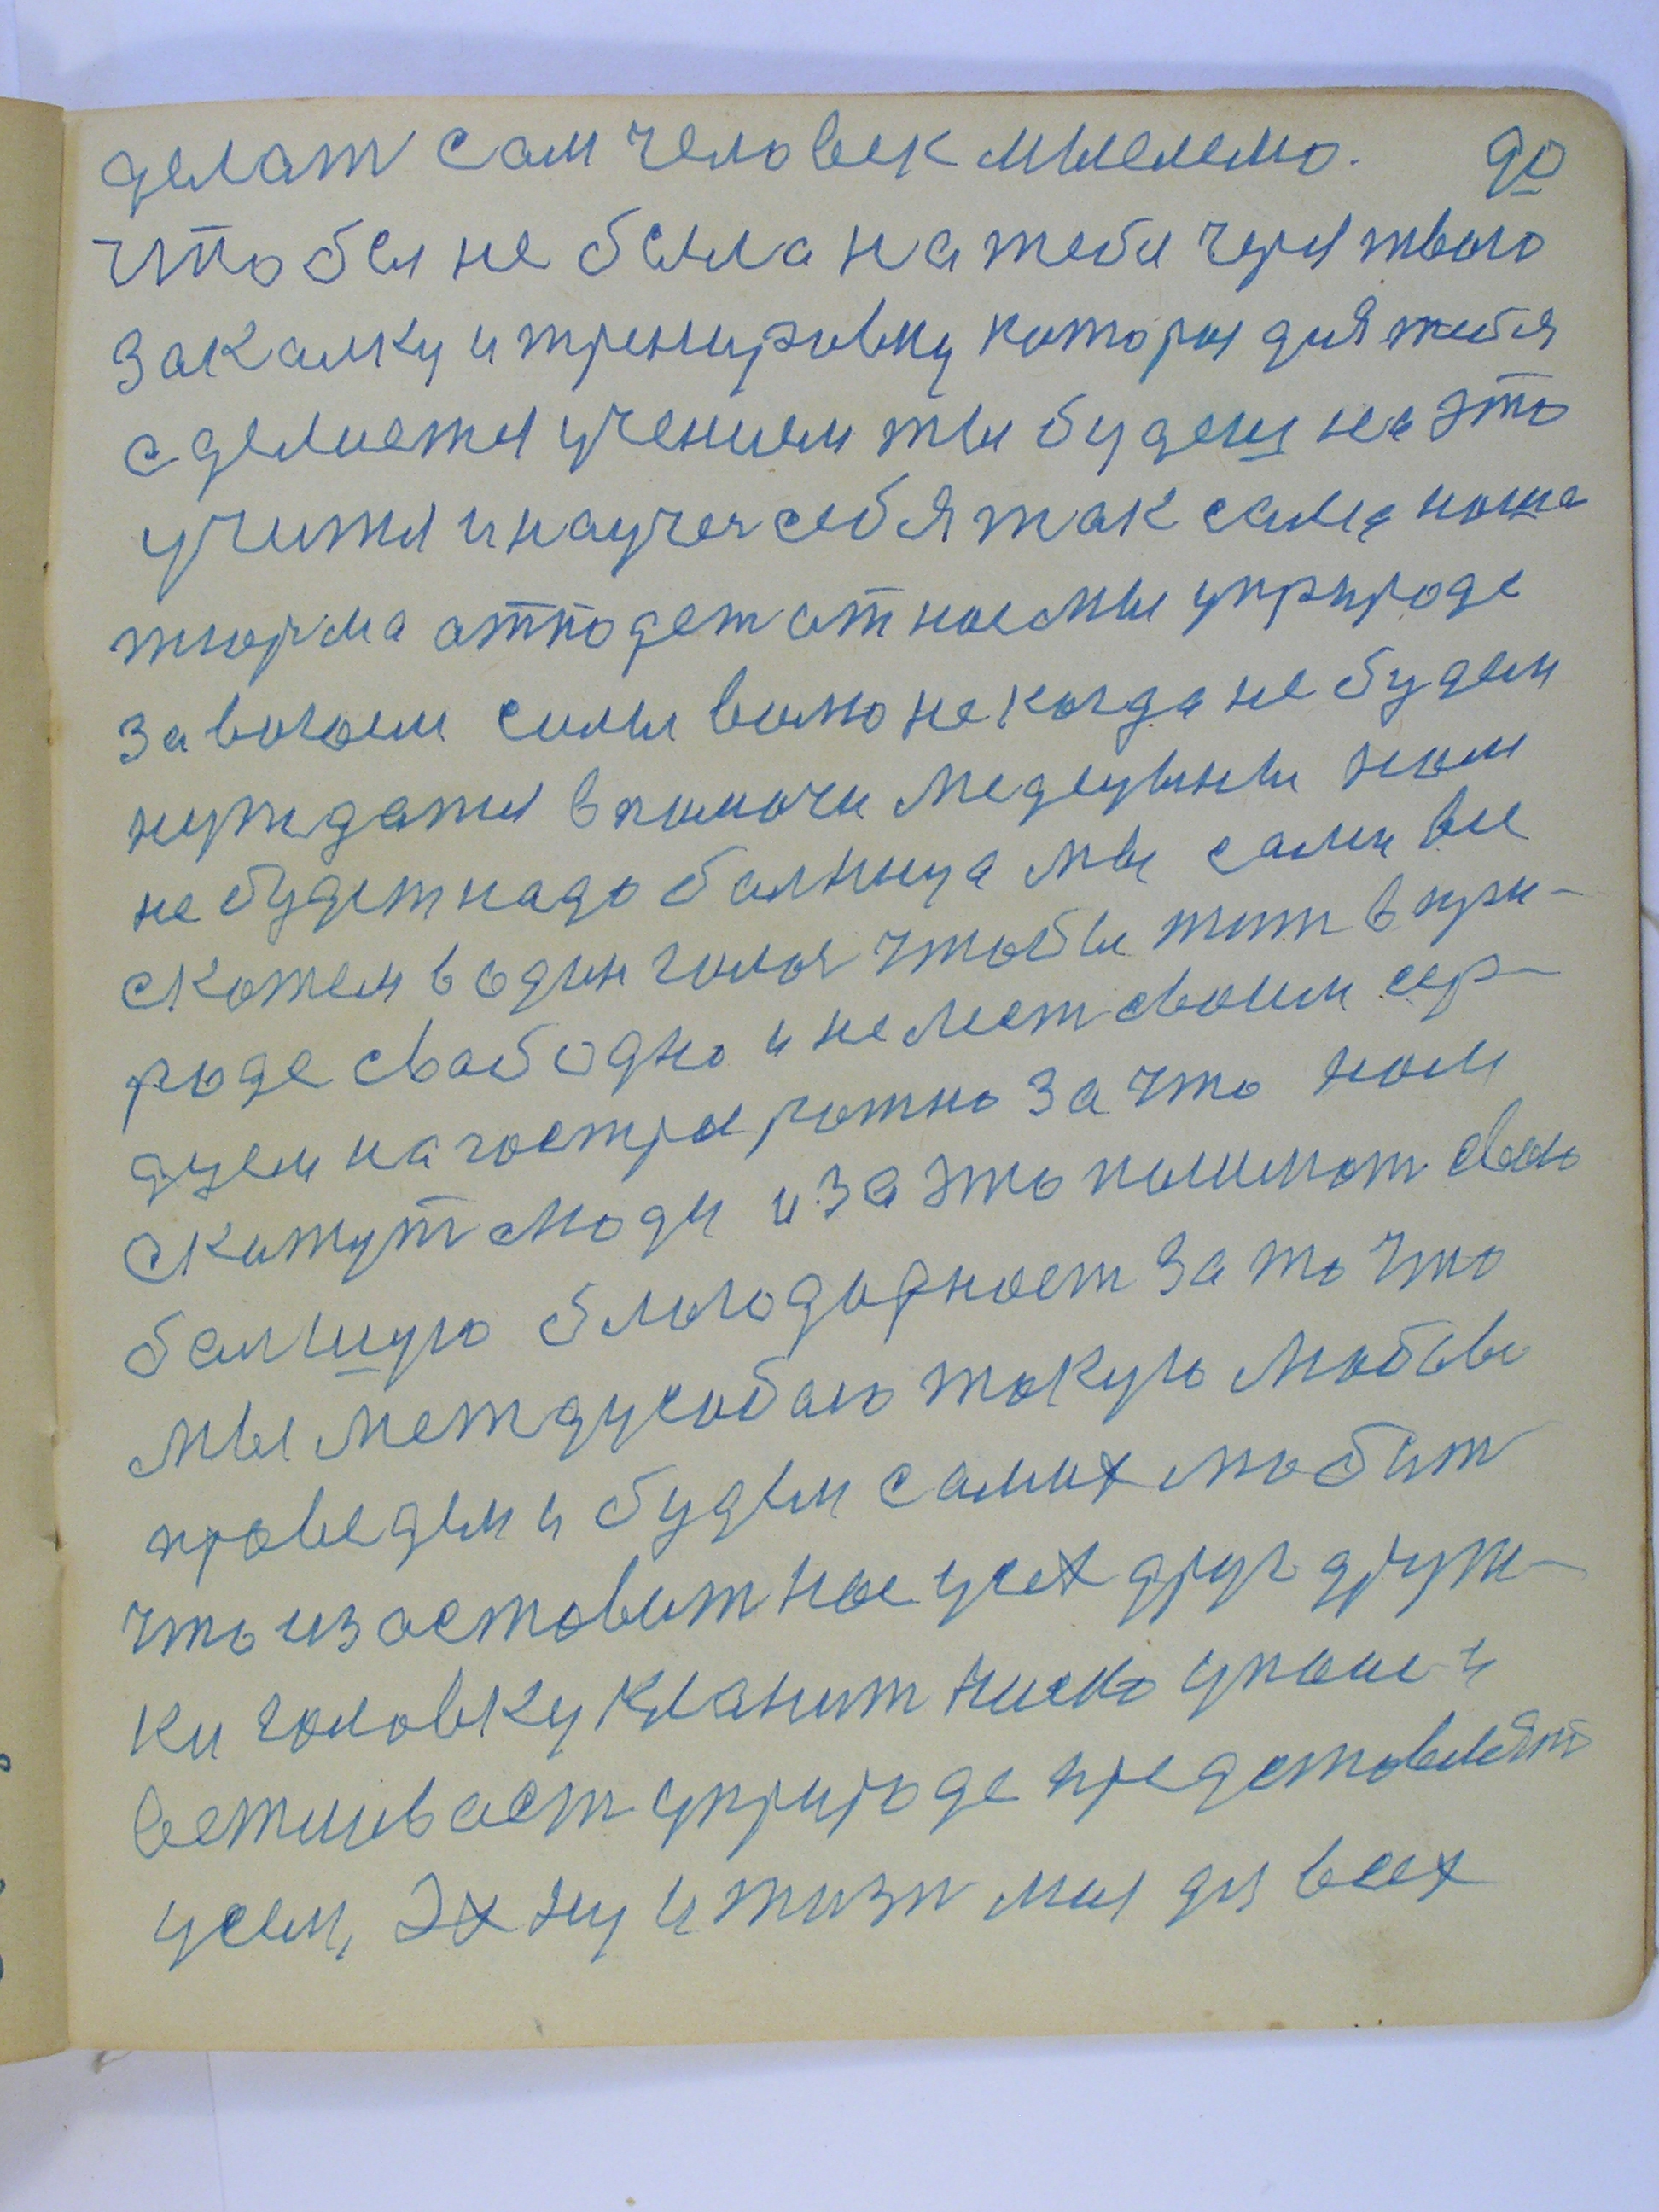 делат сам человек мыслемо. 90
Чтобы не была на тебя через твою
закалку и тренировку которая для тебя
сделается учением ты будеш на это
учится и научен себя так сама наша
тюрма отподет от нас мы у природе
завоюем силы волю некогда не будем
нуждатся в помочи медецыны нам
не будет надо балница мы сами все
скажем в один голос чтобы жит в при-
роде свабодно и не лест своим сер-
дцем на гостры рожно за что нам
скажут люди и за это пошлют свою
балшую благодарност за то что
мы между собаю такую любовь
проведем и будем самих любит
что и заставит нас усех друг друж-
ки головку кланит ниско упаше и
встливаст у природе представлят
усем, Эх ну и жизн мая для всех